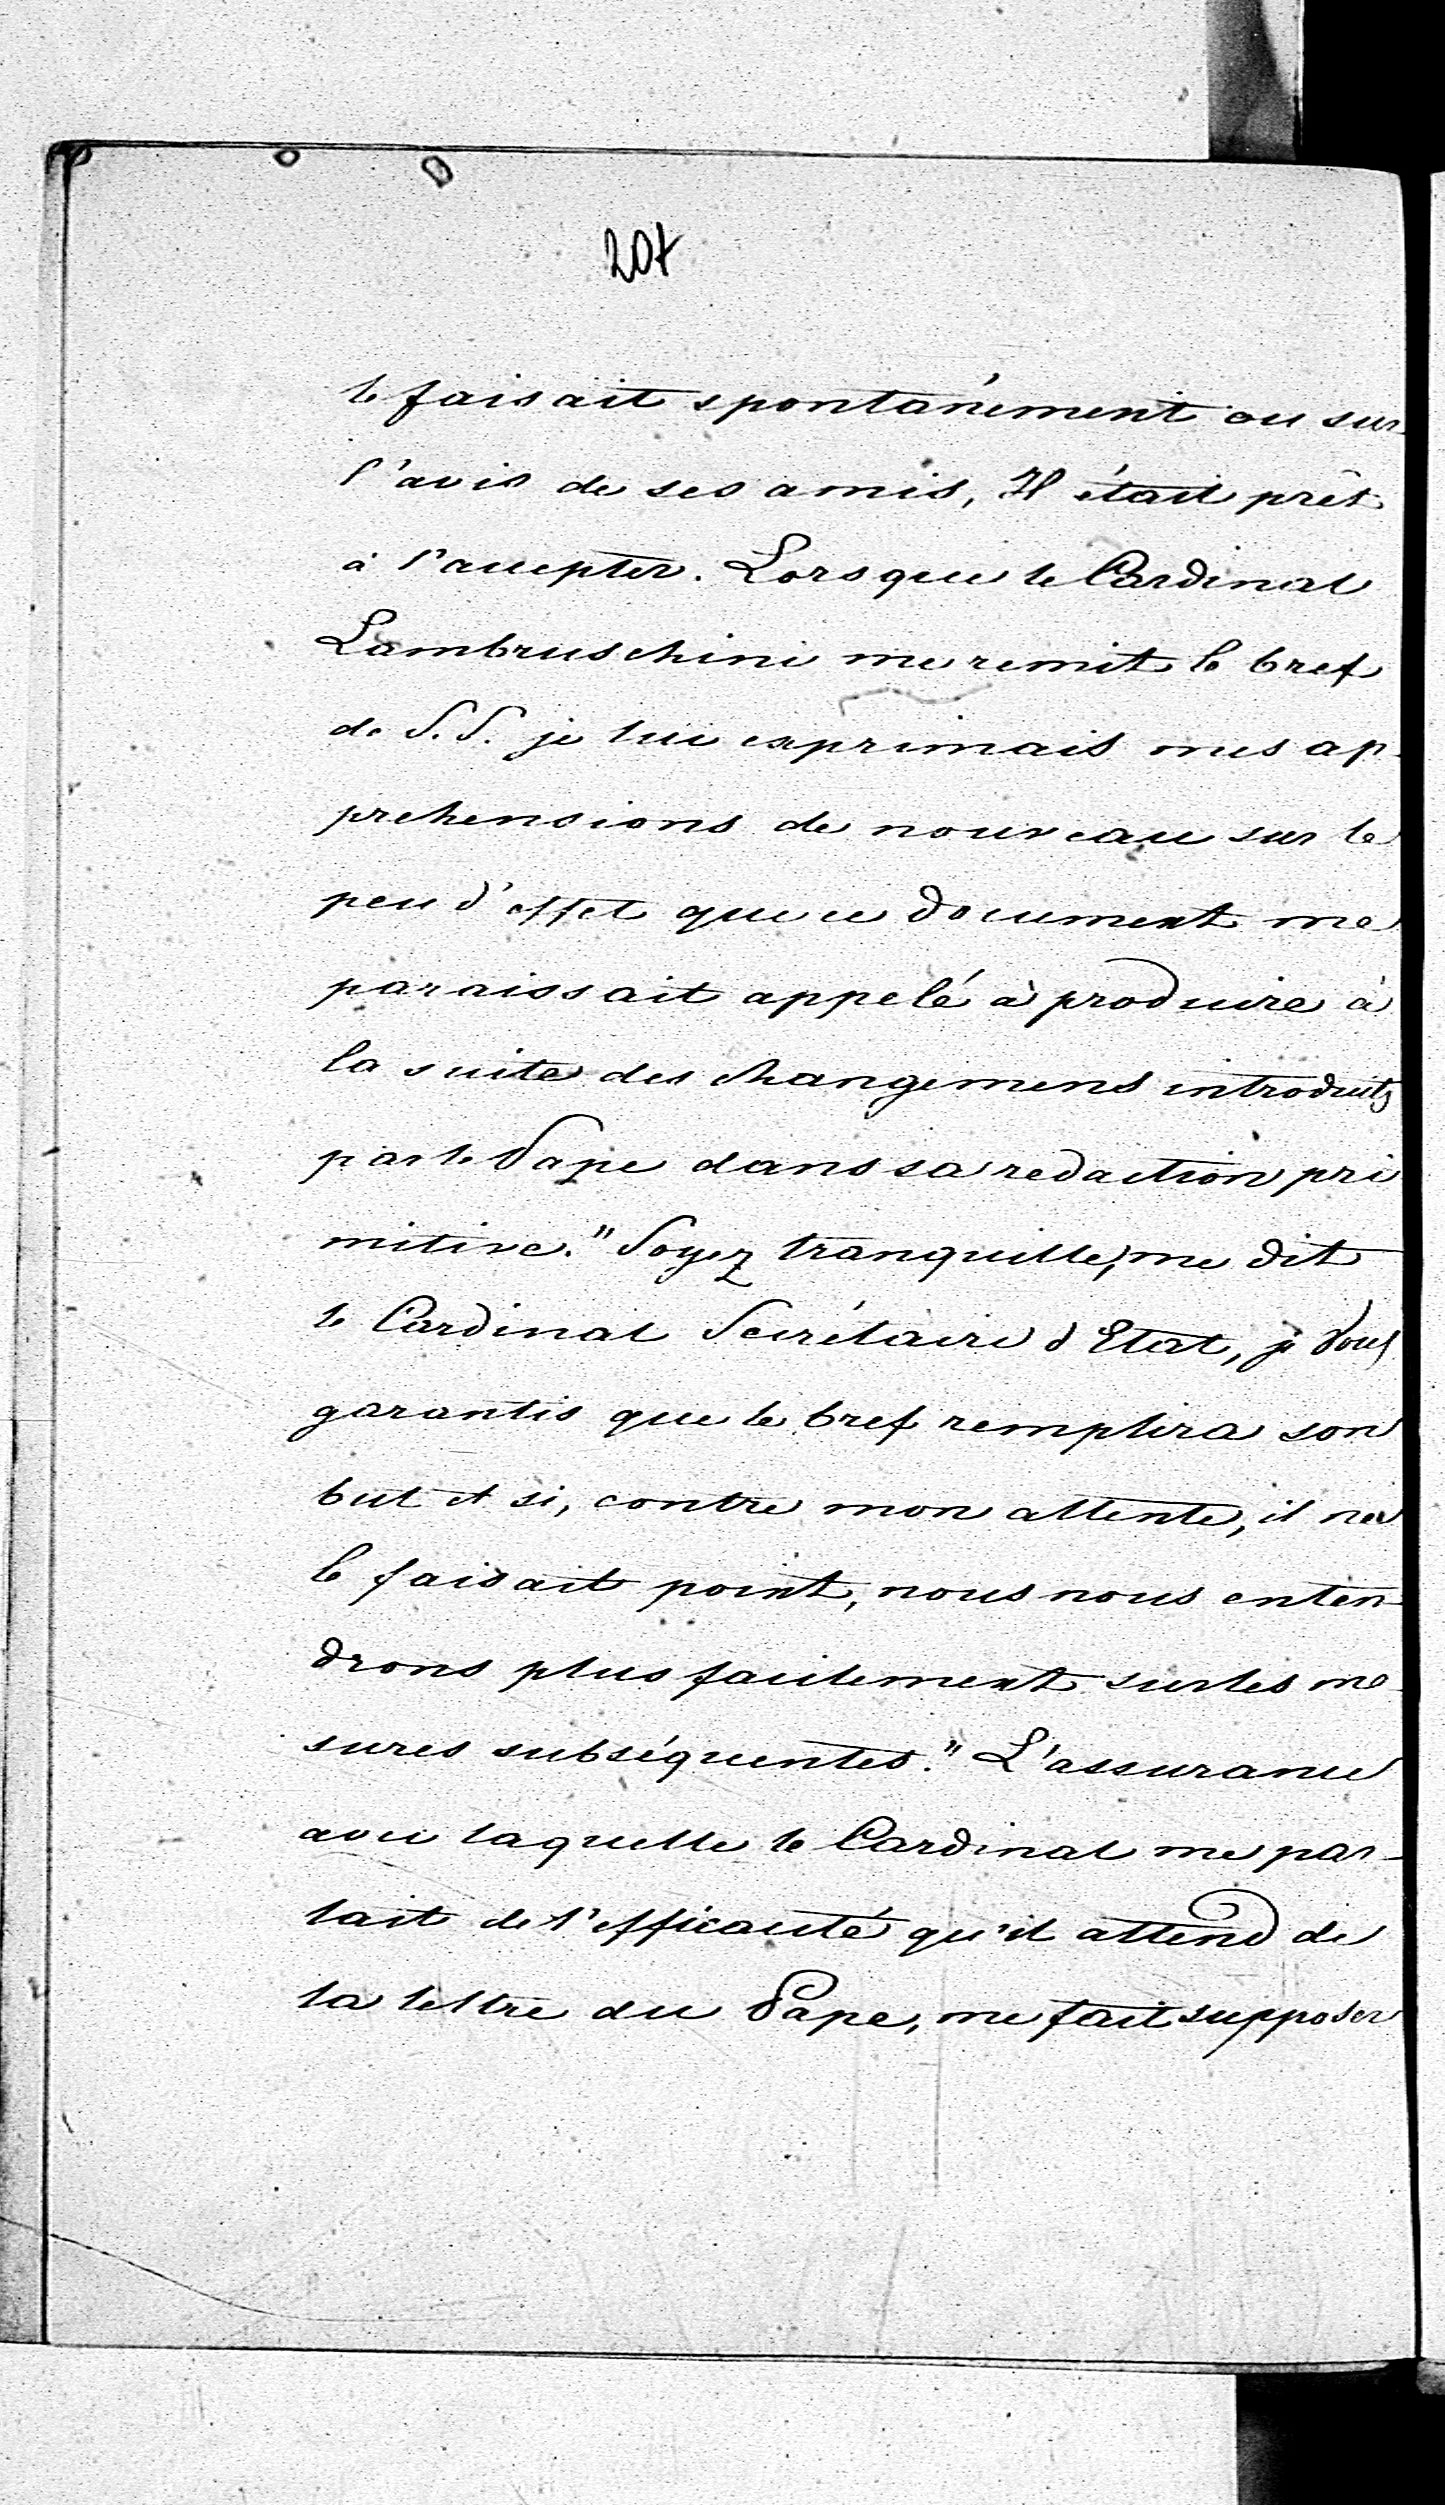 207
le faisait spontanément ou sur
l'avis de ses amis, Il était prêt
à l'accepter. Lorsque le Cardinal
Lambruschini me remit le bref
de S. S. je lui exprimais mes ap-
prehensions de nouveau sur le
peu d'effet que ce document me
paraissait appelé à produire à
la suite des changemens introduits
par le Pape dans sa redaction pri
mitive. "Soyez tranquille, me dit
le Cardinal Secrétaire d'Etat, je Vous
garantis que le bref remplira son
but et si, contre mon attente, il ne
le faisait point, nous nous enten-
drons plus facilement sur les me-
sures subséquentes." L'assurance
avec laquelle le Cardinal me par-
lait de l'efficacité qu'il attend de
la lettre du Pape, me fait supposer